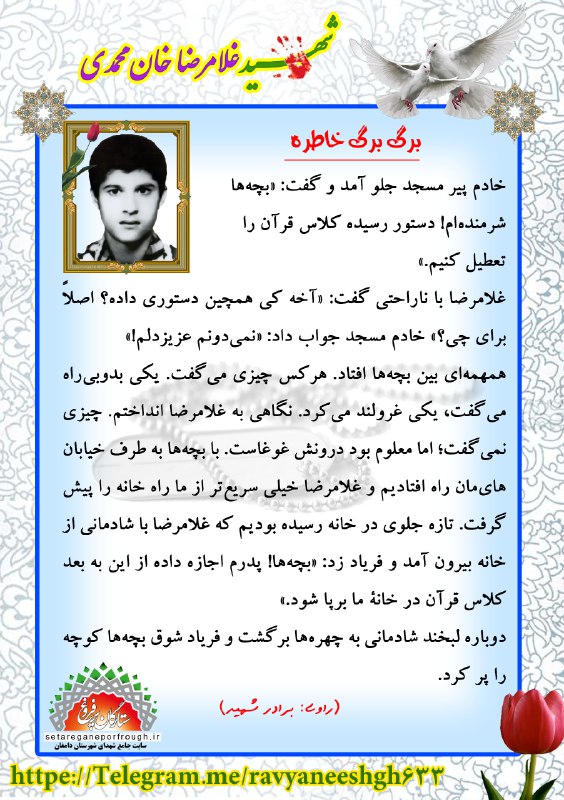 شهید غلامرضا خان محمدی
برگ برگ خاطره
خادم پیر مسجد جلو آمد و گفت: «بچه‌ها
شرمنده‌ام! دستور رسیده کلاس قرآن را
تعطیل کنیم.»
غلامرضا با ناراحتی گفت: «آخه کی همچین دستوری داده؟ اصلاً
برای چی؟» خادم مسجد جواب داد: «نمی‌دونم عزیزدلم!»
همهمه‌ای بین بچه‌ها افتاد. هرکس چیزی می‌گفت. یکی بدوبی‌راه
می‌گفت، یکی غرولند می‌کرد. نگاهی به غلامرضا انداختم. چیزی
نمی‌گفت؛ اما معلوم بود درونش غوغاست. با بچه‌ها به طرف خیابان
های‌مان راه افتادیم و غلامرضا خیلی سریع‌تر از ما راه خانه را پیش
گرفت. تازه جلوی در خانه رسیده بودیم که غلامرضا با شادمانی از
خانه بیرون آمد و فریاد زد: «بچه‌ها! پدرم اجازه داده از این به بعد
کلاس قرآن در خانهٔ ما برپا شود.»
دوباره لبخند شادمانی به چهره‌ها برگشت و فریاد شوق بچه‌ها کوچه
را پر کرد.
(راوی: برادر شهید)
ستارگان پرفروغ
setareganeporfrough.ir
سایت جامع شهدای شهرستان دامغان
https://Telegram.me/ravyaneeshgh۶۳۳